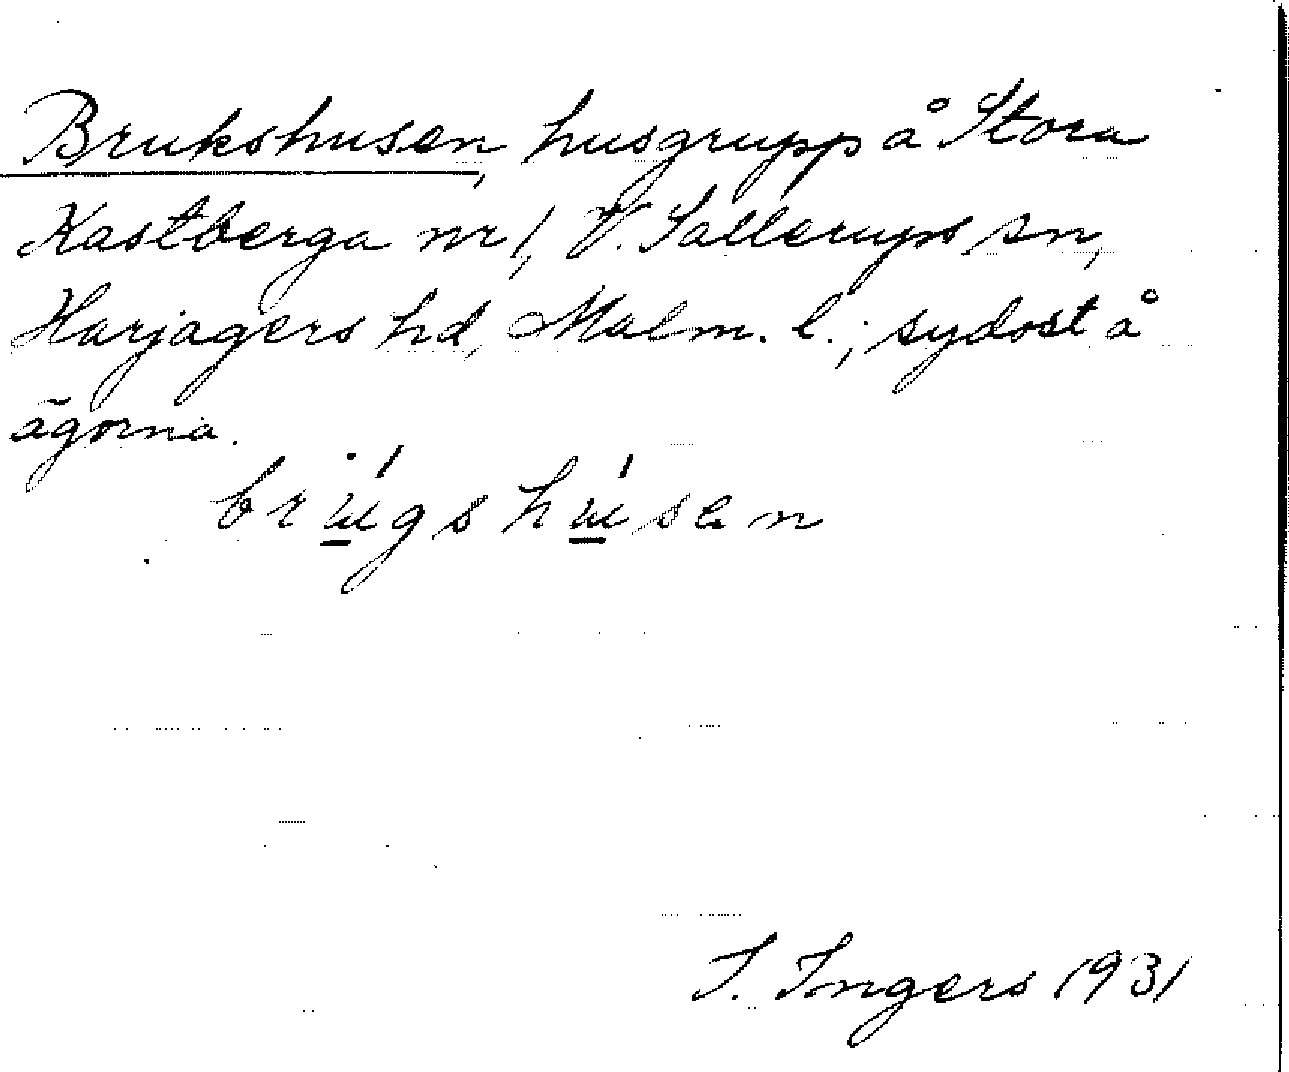 Brukshusen, husgrupp å Stora
Kastberga nr 1, V. Sallerups sn,
Harjagers hd, Malm. l.; sydost å
ägorna.
brugshusen
I. Ingers 1931